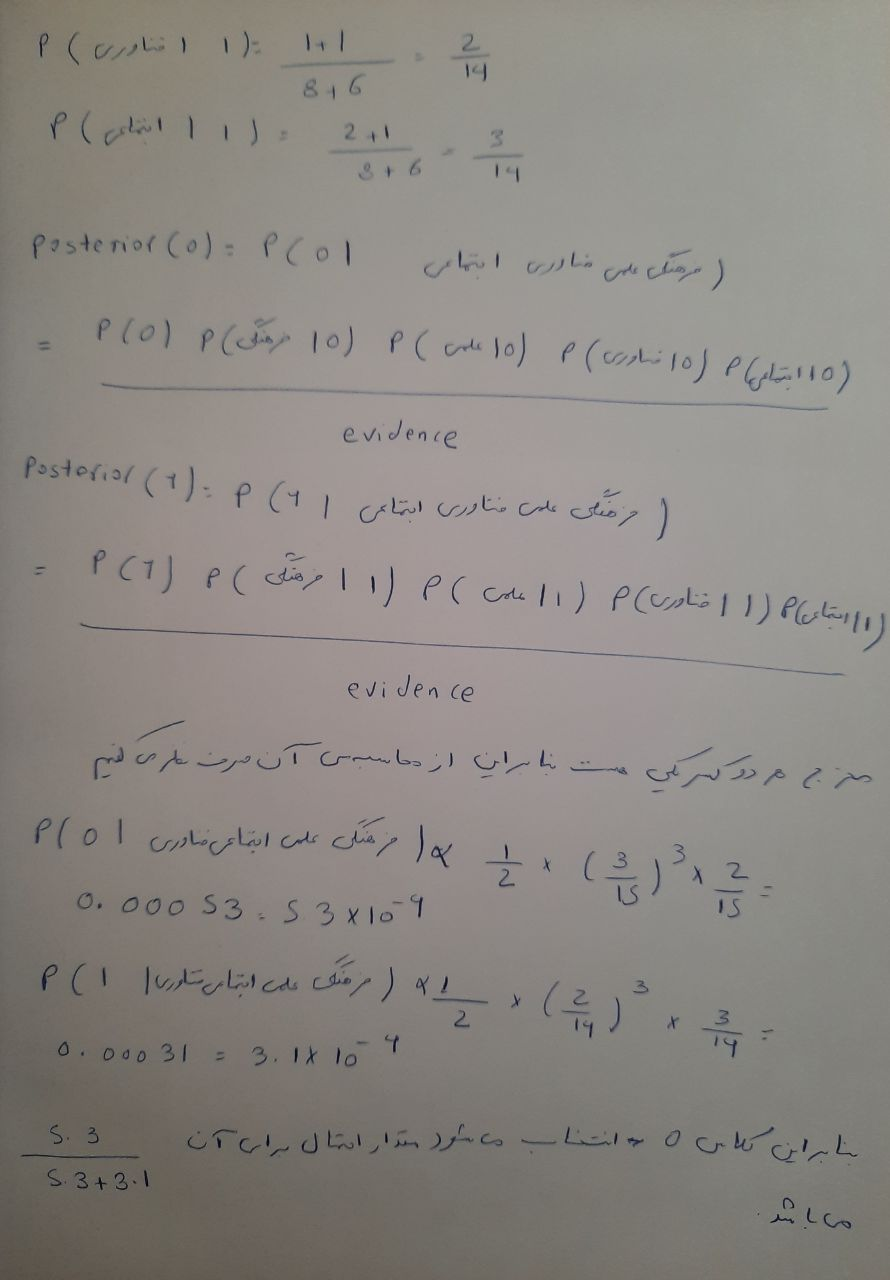 P(فناوری | 1) = 1+1 / 8+6 = 2/14
P(اجتماعی | 1) = 2+1 / 8+6 = 3/14
Posterior(0) = P(0 | فرهنگی علمی فناوری اجتماعی)
= P(0) P(فرهنگی | 0) P(علمی | 0) P(فناوری | 0) P(اجتماعی | 0)
evidence
Posterior(1) = P(1 | فرهنگی علمی فناوری اجتماعی)
= P(1) P(فرهنگی | 1) P(علمی | 1) P(فناوری | 1) P(اجتماعی | 1)
evidence
مخرج هر دو کسر یکی هست بنابراین از محاسبه‌ی آن صرف نظر می کنیم
P(0 | فرهنگی علمی اجتماعی فناوری) ∝ 1/2 × (3/15)^3 × 2/15 =
0.00053 = 5.3 × 10^-4
P(1 | فرهنگی علمی اجتماعی فناوری) ∝ 1/2 × (2/14)^3 × 3/14 =
0.00031 = 3.1 × 10^-4
بنابراین کلاس 0 انتخاب می شود مقدار احتمال برای آن 5.3 / 5.3+3.1
می باشد.